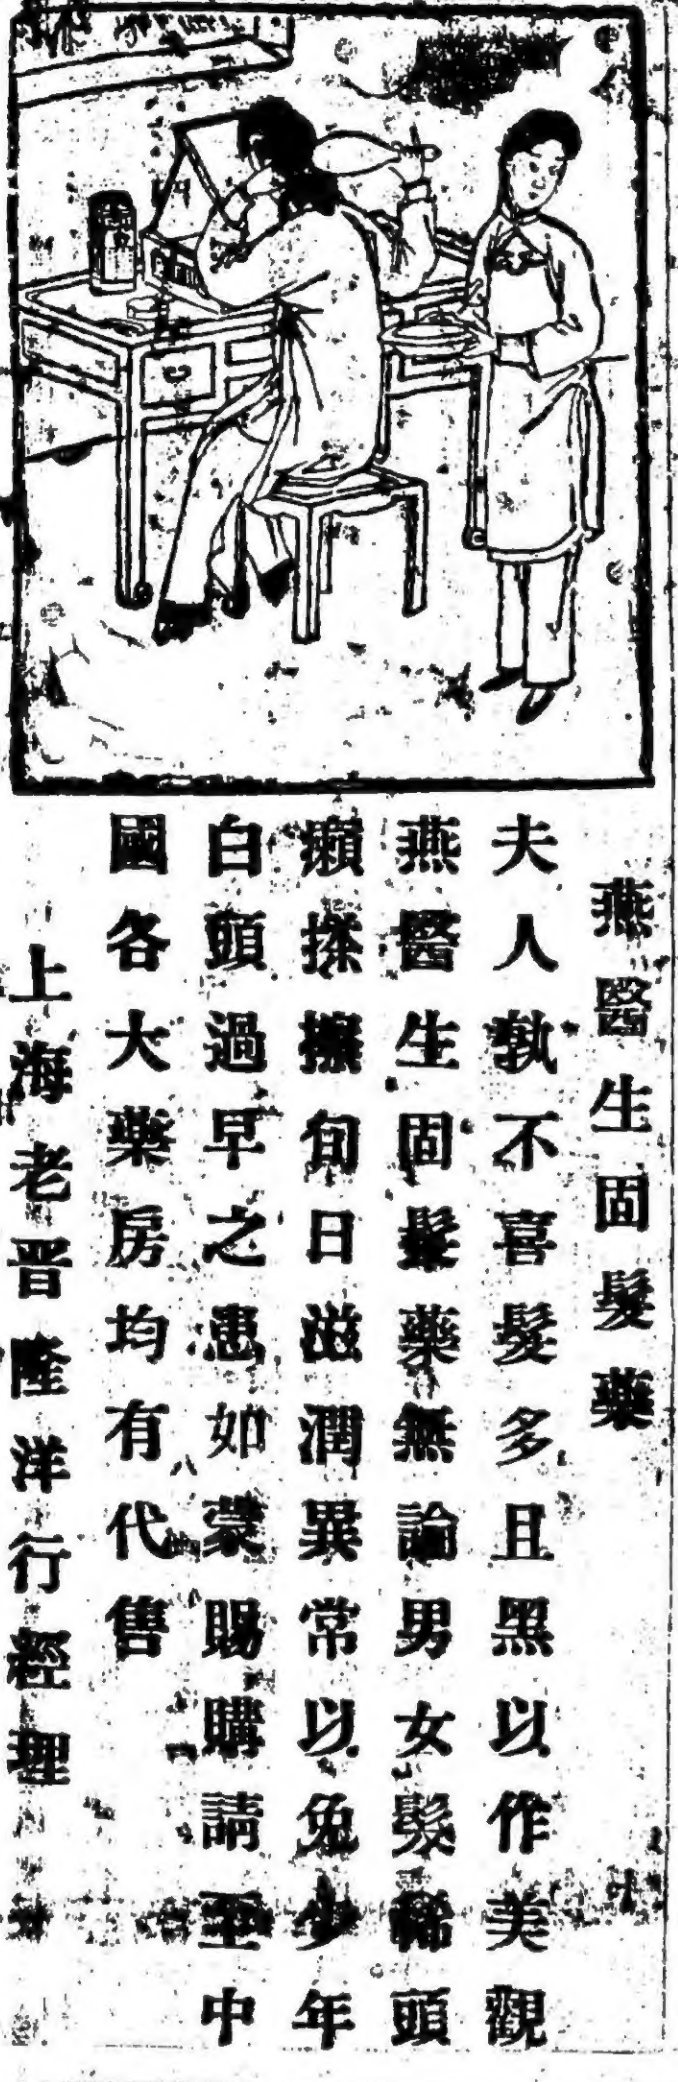 燕醫生固髮藥
夫人孰不喜髮多且黑以作美觀
燕醫生固髮藥無論男女髮稀頭
癩搽擦旬日滋潤異常以免少年
白頭過早之患如蒙賜購請至中
國各大藥房均有代售
上海老晋隆洋行經理